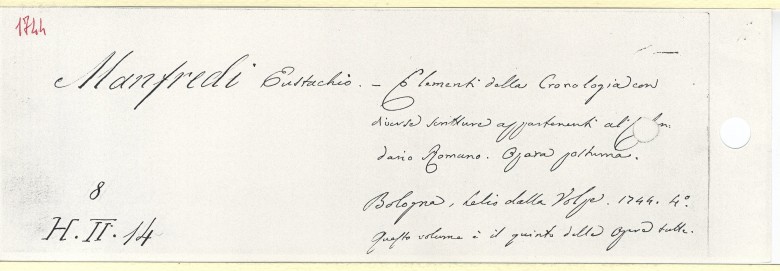 1744
Manfredi Eustachio. – Elementi della Cronologia con
diverse scritture appartenenti al
dario Romano. Opera postuma.
Bologna, Lelio dalla Volpe. 1744. 4º.
Questo volume è il quinto delle Opere tutte.
8
H. II. 14